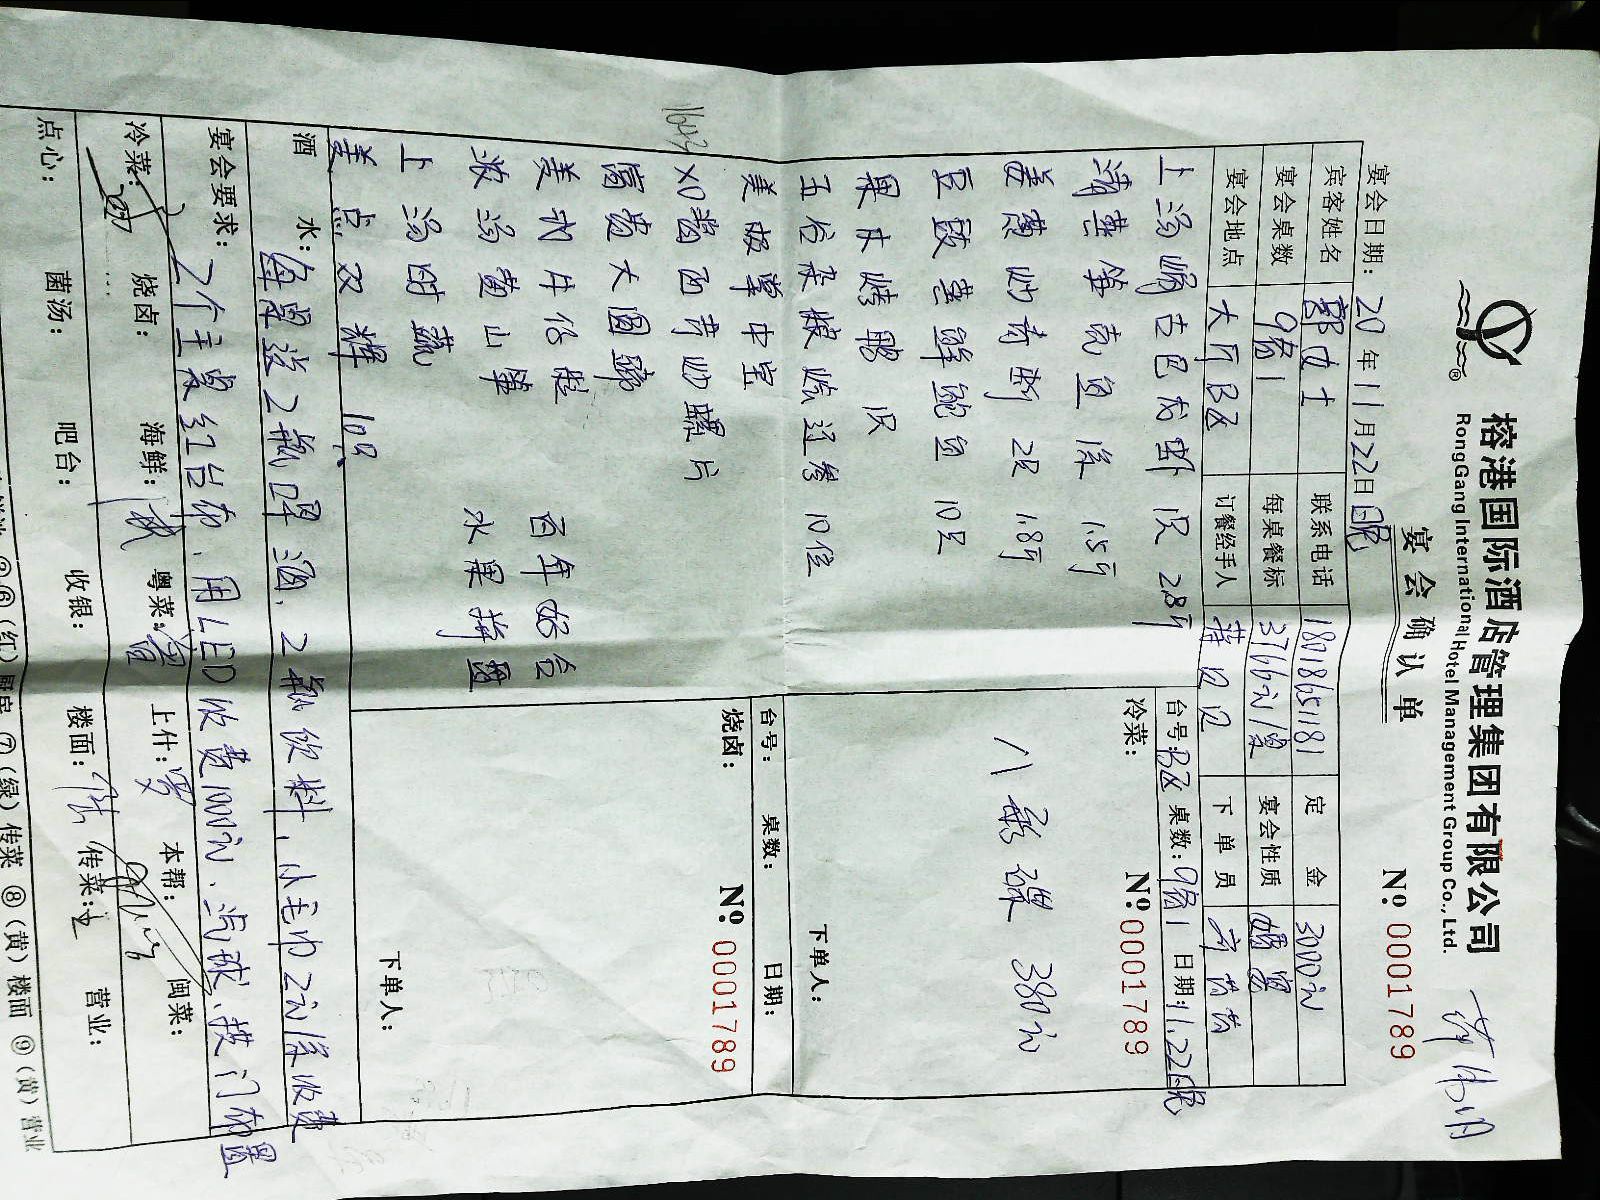 榕港国际酒店管理集团有限公司
RongGang International Hotel Management Group Co., Ltd.
宴会确认单
№: 0001789
宴会日期: 20 年 11 月 22 日 晚
宾客姓名 郭女士 联系电话 18018651181 定金 3000元
宴会桌数 9备1 每桌餐标 3766元/桌 宴会性质 婚宴
宴会地点 大厅B区 订餐经手人 下单员
上汤焗古巴龙虾 1只 2.8斤
清蒸笋壳鱼 1条 1.5斤
姜葱炒青蟹 2只 1.8斤
豆豉蒸鲜鲍鱼 10只
果木烤鸭 1只
五谷杂粮烩辽参 10位
美极掌中宝
XO酱西芹炒螺片
富贵大圆蹄
美式牛仔腿
浓汤黄山笋
上汤时蔬
美点双辉 10只
百年好合
水果拼盘
1643
台号: B区 桌数: 9备1 日期: 11.22晚
冷菜: №: 0001789
八彩碟 380元
下单人:
台号: 桌数: 日期:
烧卤: №: 0001789
下单人:
酒水: 每桌送2瓶啤酒、2瓶饮料、小毛巾2元/条收费
宴会要求: 2个主桌红台布、用LED收费1000元、汽球、拱门布置
冷菜: 烧卤: 海鲜: 粤菜: 上什: 本帮: 闽菜:
点心: 菌汤: 吧台: 收银: 楼面: 传菜: 营业:
⑥(红)厨房 ⑦(绿)传菜 ⑧(黄)楼面 ⑨(黄)营业